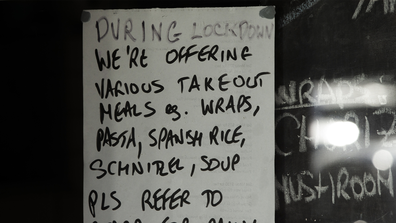 DURING LOCKDOWN
WE'RE OFFERING
VARIOUS TAKEOUT
MEALS eg. WRAPS,
PASTA, SPANSH RICE,
SCHNITZEL, SOUP
PLS REFER TO
WRAPS
MUSHROOM